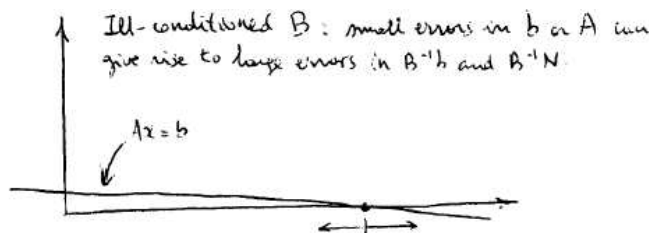 Ill-conditioned B: small errors in b or A can
give rise to large errors in B⁻¹b and B⁻¹N.
Ax = b